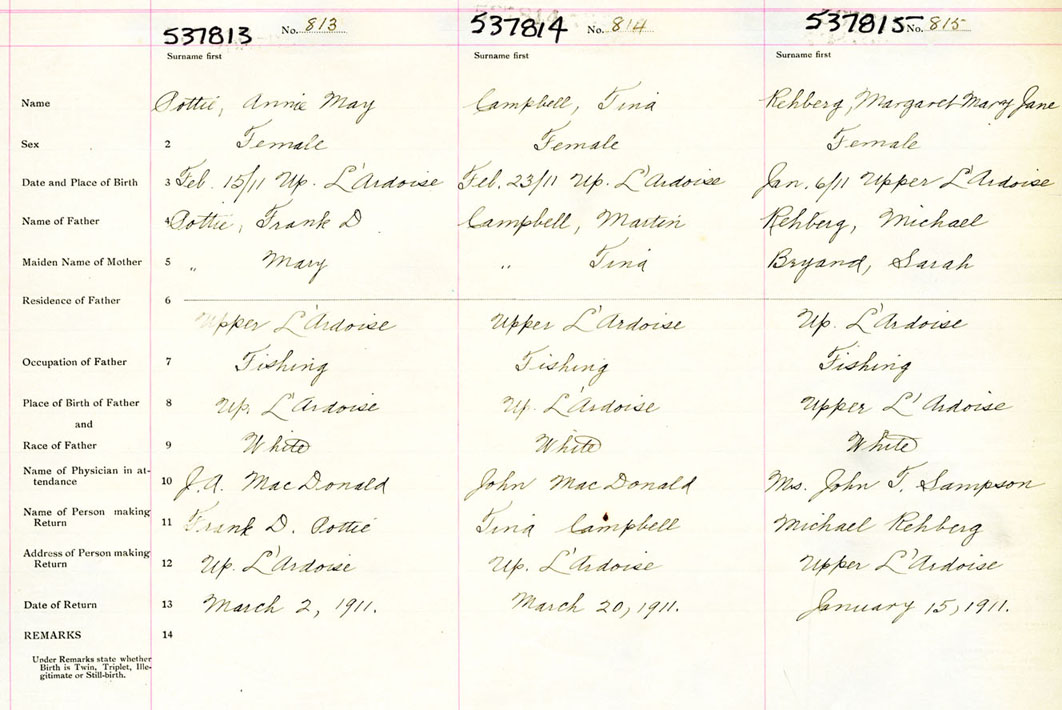 537813 No. 813 537814 No. 814 537815 No. 815
Surname first Surname first Surname first
Name Pottie, Annie May Campbell, Tina Rehberg, Margaret Mary Jane
Sex 2 Female Female Female
Date and Place of Birth 3 Feb. 15/11 Up. L'Ardoise Feb. 23/11 Up. L'Ardoise Jan. 6/11 Upper L'Ardoise
Name of Father 4 Pottie, Frank D Campbell, Martin Rehberg, Michael
Maiden Name of Mother 5 " Mary " Tina Bryand, Sarah
Residence of Father 6
Upper L'Ardoise Upper L'Ardoise Up. L'Ardoise
Occupation of Father 7 Fishing Fishing Fishing
Place of Birth of Father 8 Up. L'Ardoise Up. L'Ardoise Upper L'Ardoise
and
Race of Father 9 White White White
Name of Physician in at-
tendance 10 J.A. MacDonald John MacDonald Mrs. John T. Sampson
Name of Person making
Return 11 Frank D. Pottie Tina Campbell Michael Rehberg
Address of Person making
Return 12 Up. L'Ardoise Up. L'Ardoise Upper L'Ardoise
Date of Return 13 March 2, 1911. March 20, 1911. January 15, 1911.
REMARKS 14
Under Remarks state whether
Birth is Twin, Triplet, Ille-
gitimate or Still-birth.